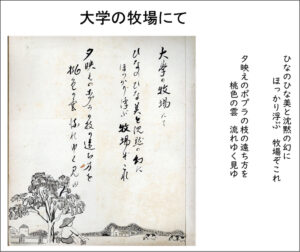 大学の牧場にて
ひなのひな美と沈黙の幻に
ほっかり浮ぶ 牧場ぞこれ
夕映えのポプラの枝の遠ち方を
桃色の雲 流れゆく見ゆ
大学の牧場にて
ひなのひな美と沈黙の幻に
ほっかり浮ぶ 牧場ぞこれ
夕映えのポプラの枝の遠ち方を
桃色の雲 流れゆく見ゆ